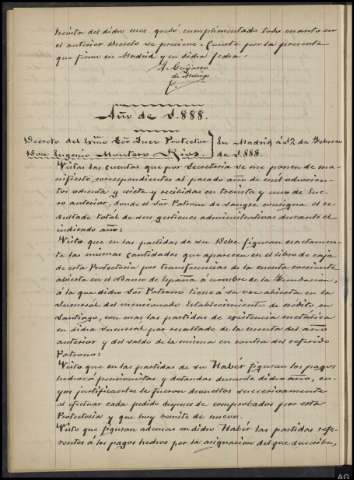 treinta del dicho mes quedó cumplimentado todo cuanto en
el anterior decreto se previene. Conste por la presente
que firmo en Madrid y en dicha fecha.
Año de 1.888.
Decreto del Exmo Sór Juez Protector
Don Eugenio Montero Rios.
En Madrid á 12 de Febrero
de 1.888.
Vistas las cuentas que por Secretaría se me ponen de ma-
nifiesto, correspondientes al pasado año de mil ochocien-
tos ochenta y siete y recibidas en treinta y uno de Ene-
ro anterior, donde el Sór Patrono de Sangre consigna el re-
sultado total de sus gestiones administrativas durante el
indicado año:
Visto que en las partidas de su Debe figuran exactamen-
te las mismas cantidades que aparecen en el libro de caja
de esta Protectoría por transferencias de la cuenta corriente
abierta en el Banco de España á nombre de la Fundacion,
á la que dicho Sór Patrono tiene á su vez abierta en la
Sucursal del mencionado Establecimiento de crédito en
Santiago, con mas las partidas de existencia en metálico
en dicha Sucursal por resultado de la cuenta del año
anterior y del saldo de la misma en contra del referido
Patrono:
Visto que en las partidas de su Haber figuran los pagos
hechos á pensionistas y dotandas durante dicho año, cu-
yos justificantes le fueron devueltos sucesivamente
al efectuar cada pedido despues de comprobados por esta
Protectoría y que hoy remite de nuevo.
Visto que figuran ademas en dicho Haber las partidas refe-
rentes á los pagos hechos por la asignacion del que suscribe,